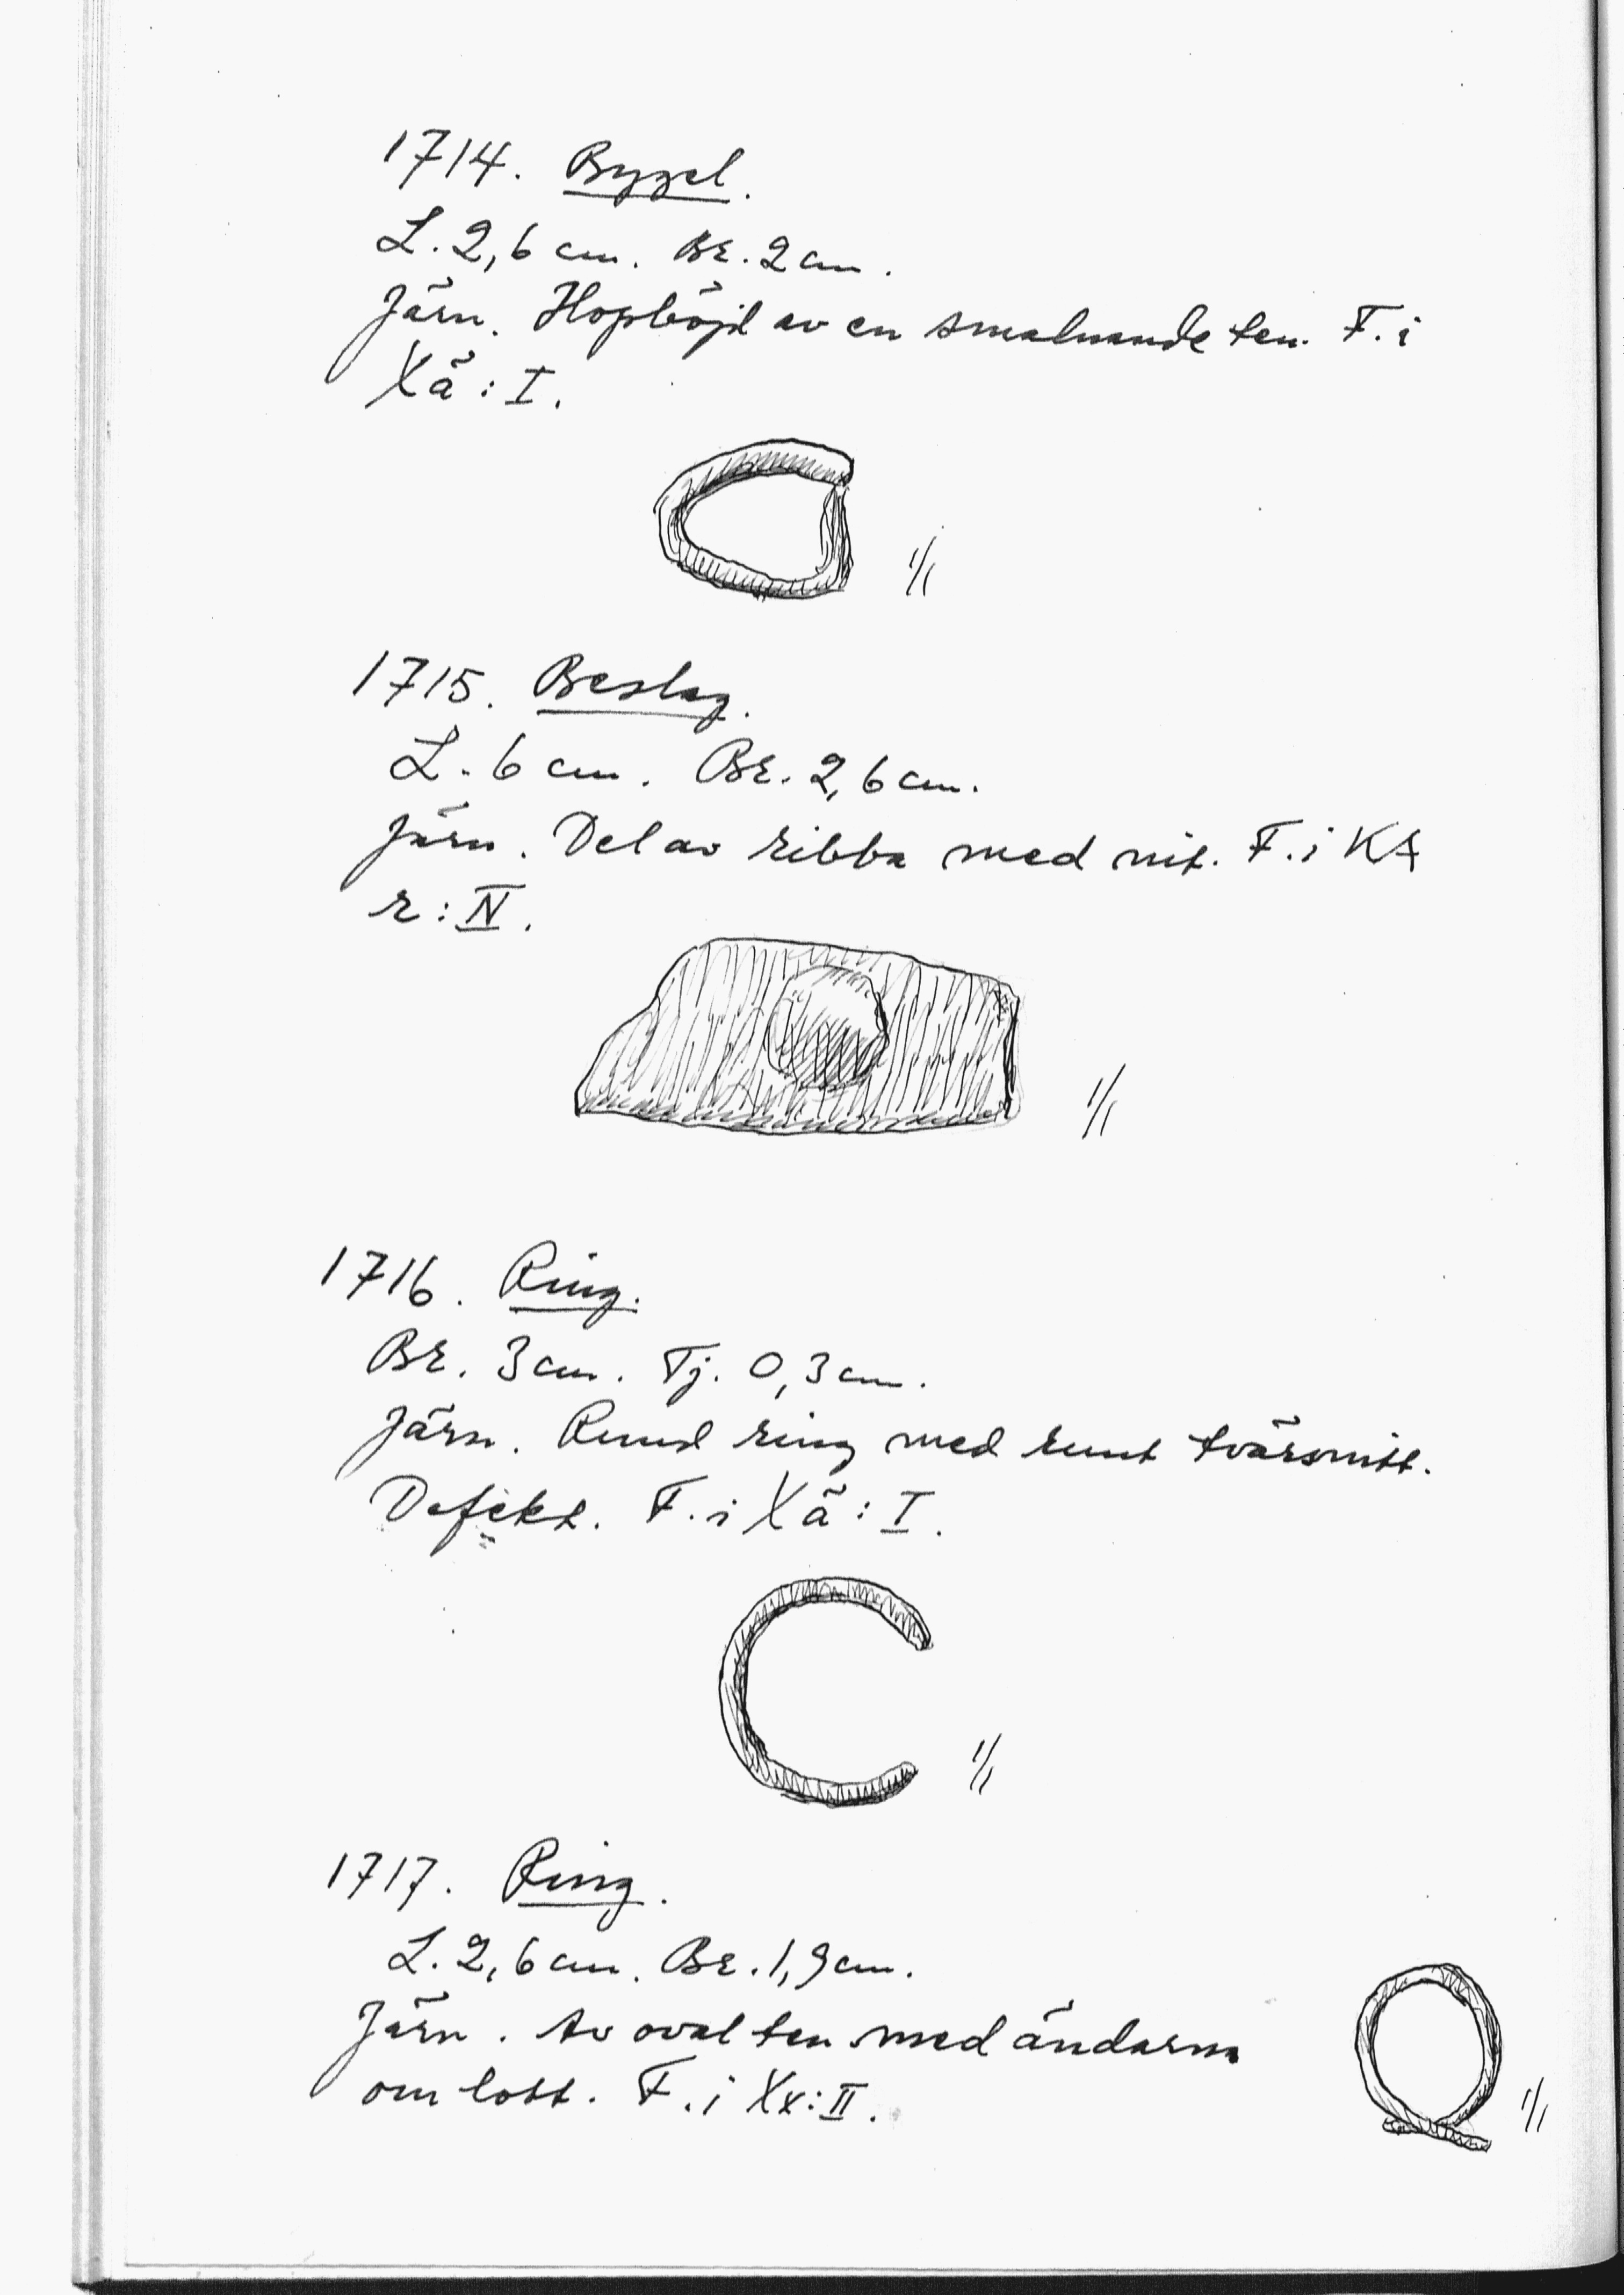 1714. Bygel.
L. 2,6 cm. Br. 2 cm.
Järn. Hopböjd av en smalnande ten. F. i
Xä: I.
1/1
1715. Beslag.
L. 6 cm. Br. 2,6 cm.
Järn. Del av ribba med nit. F. i
r: IV.
1/1
1716. Ring.
Br. 3 cm. Tj. 0,3 cm.
Järn. Rund ring med runt tvärsnitt.
Defekt. F. i Xä: I.
1/1
1717. Ring.
L. 2,6 cm. Br. 1,9 cm.
Järn. Av oval ten med ändarna
om lott. F. i Xx: II.
1/1